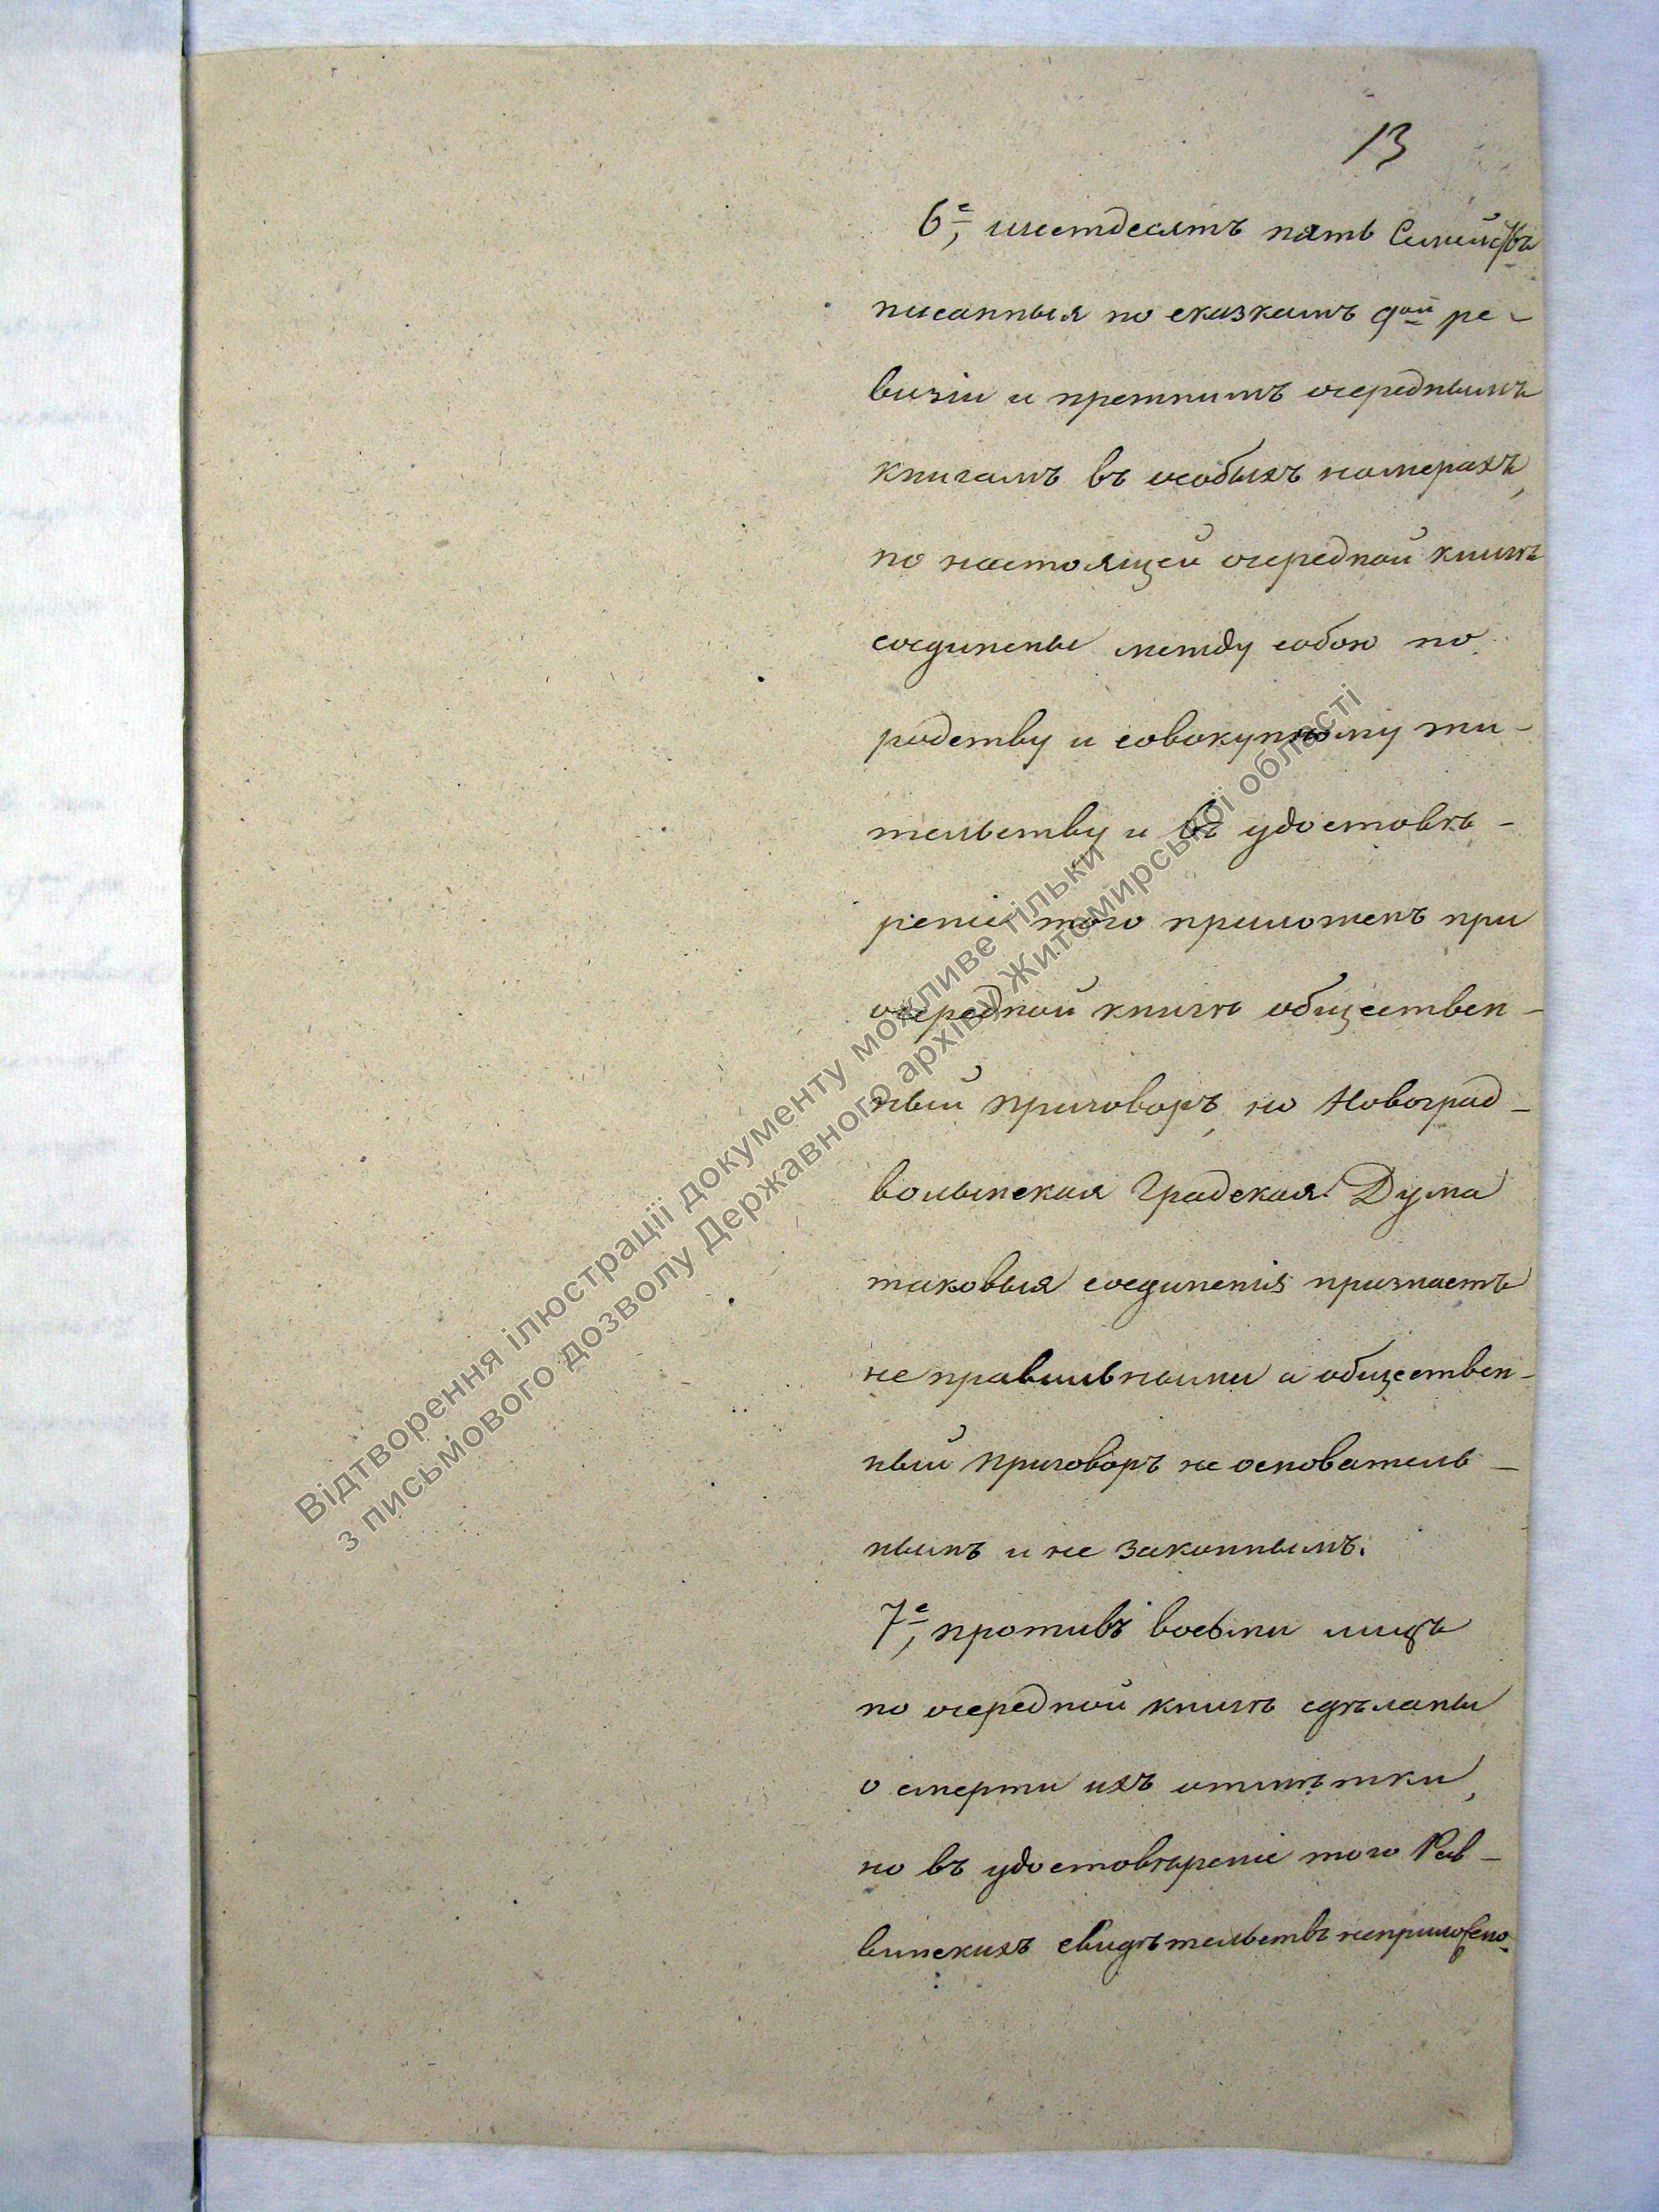 13
6е, шестдесятъ пять Семействъ
писанныя по сказкамъ 9ой ре-
визіи и прежнимъ очереднымъ
книгамъ въ особыхъ номерахъ,
по настоящей очередной книгѣ
соединены между собою по
родству и совокупному жи-
тельству и въ удостовѣ-
реніе того приложенъ при
очередной книгѣ обществен-
ный приговоръ, но Новоград-
волынская Градская Дума
таковыя соединенія признаетъ
не правильными а обществен-
ный приговоръ не основатель-
нымъ и не законнымъ.
7е, противъ восьми лицъ
по очередной книгѣ сдѣланы
о смерти ихъ отмѣтки,
но въ удостовѣреніе того Рав-
винскихъ свидѣтельствъ неприложено.
Відтворення ілюстрації документу можливе тільки
з письмового дозволу Державного архіву Житомирської області